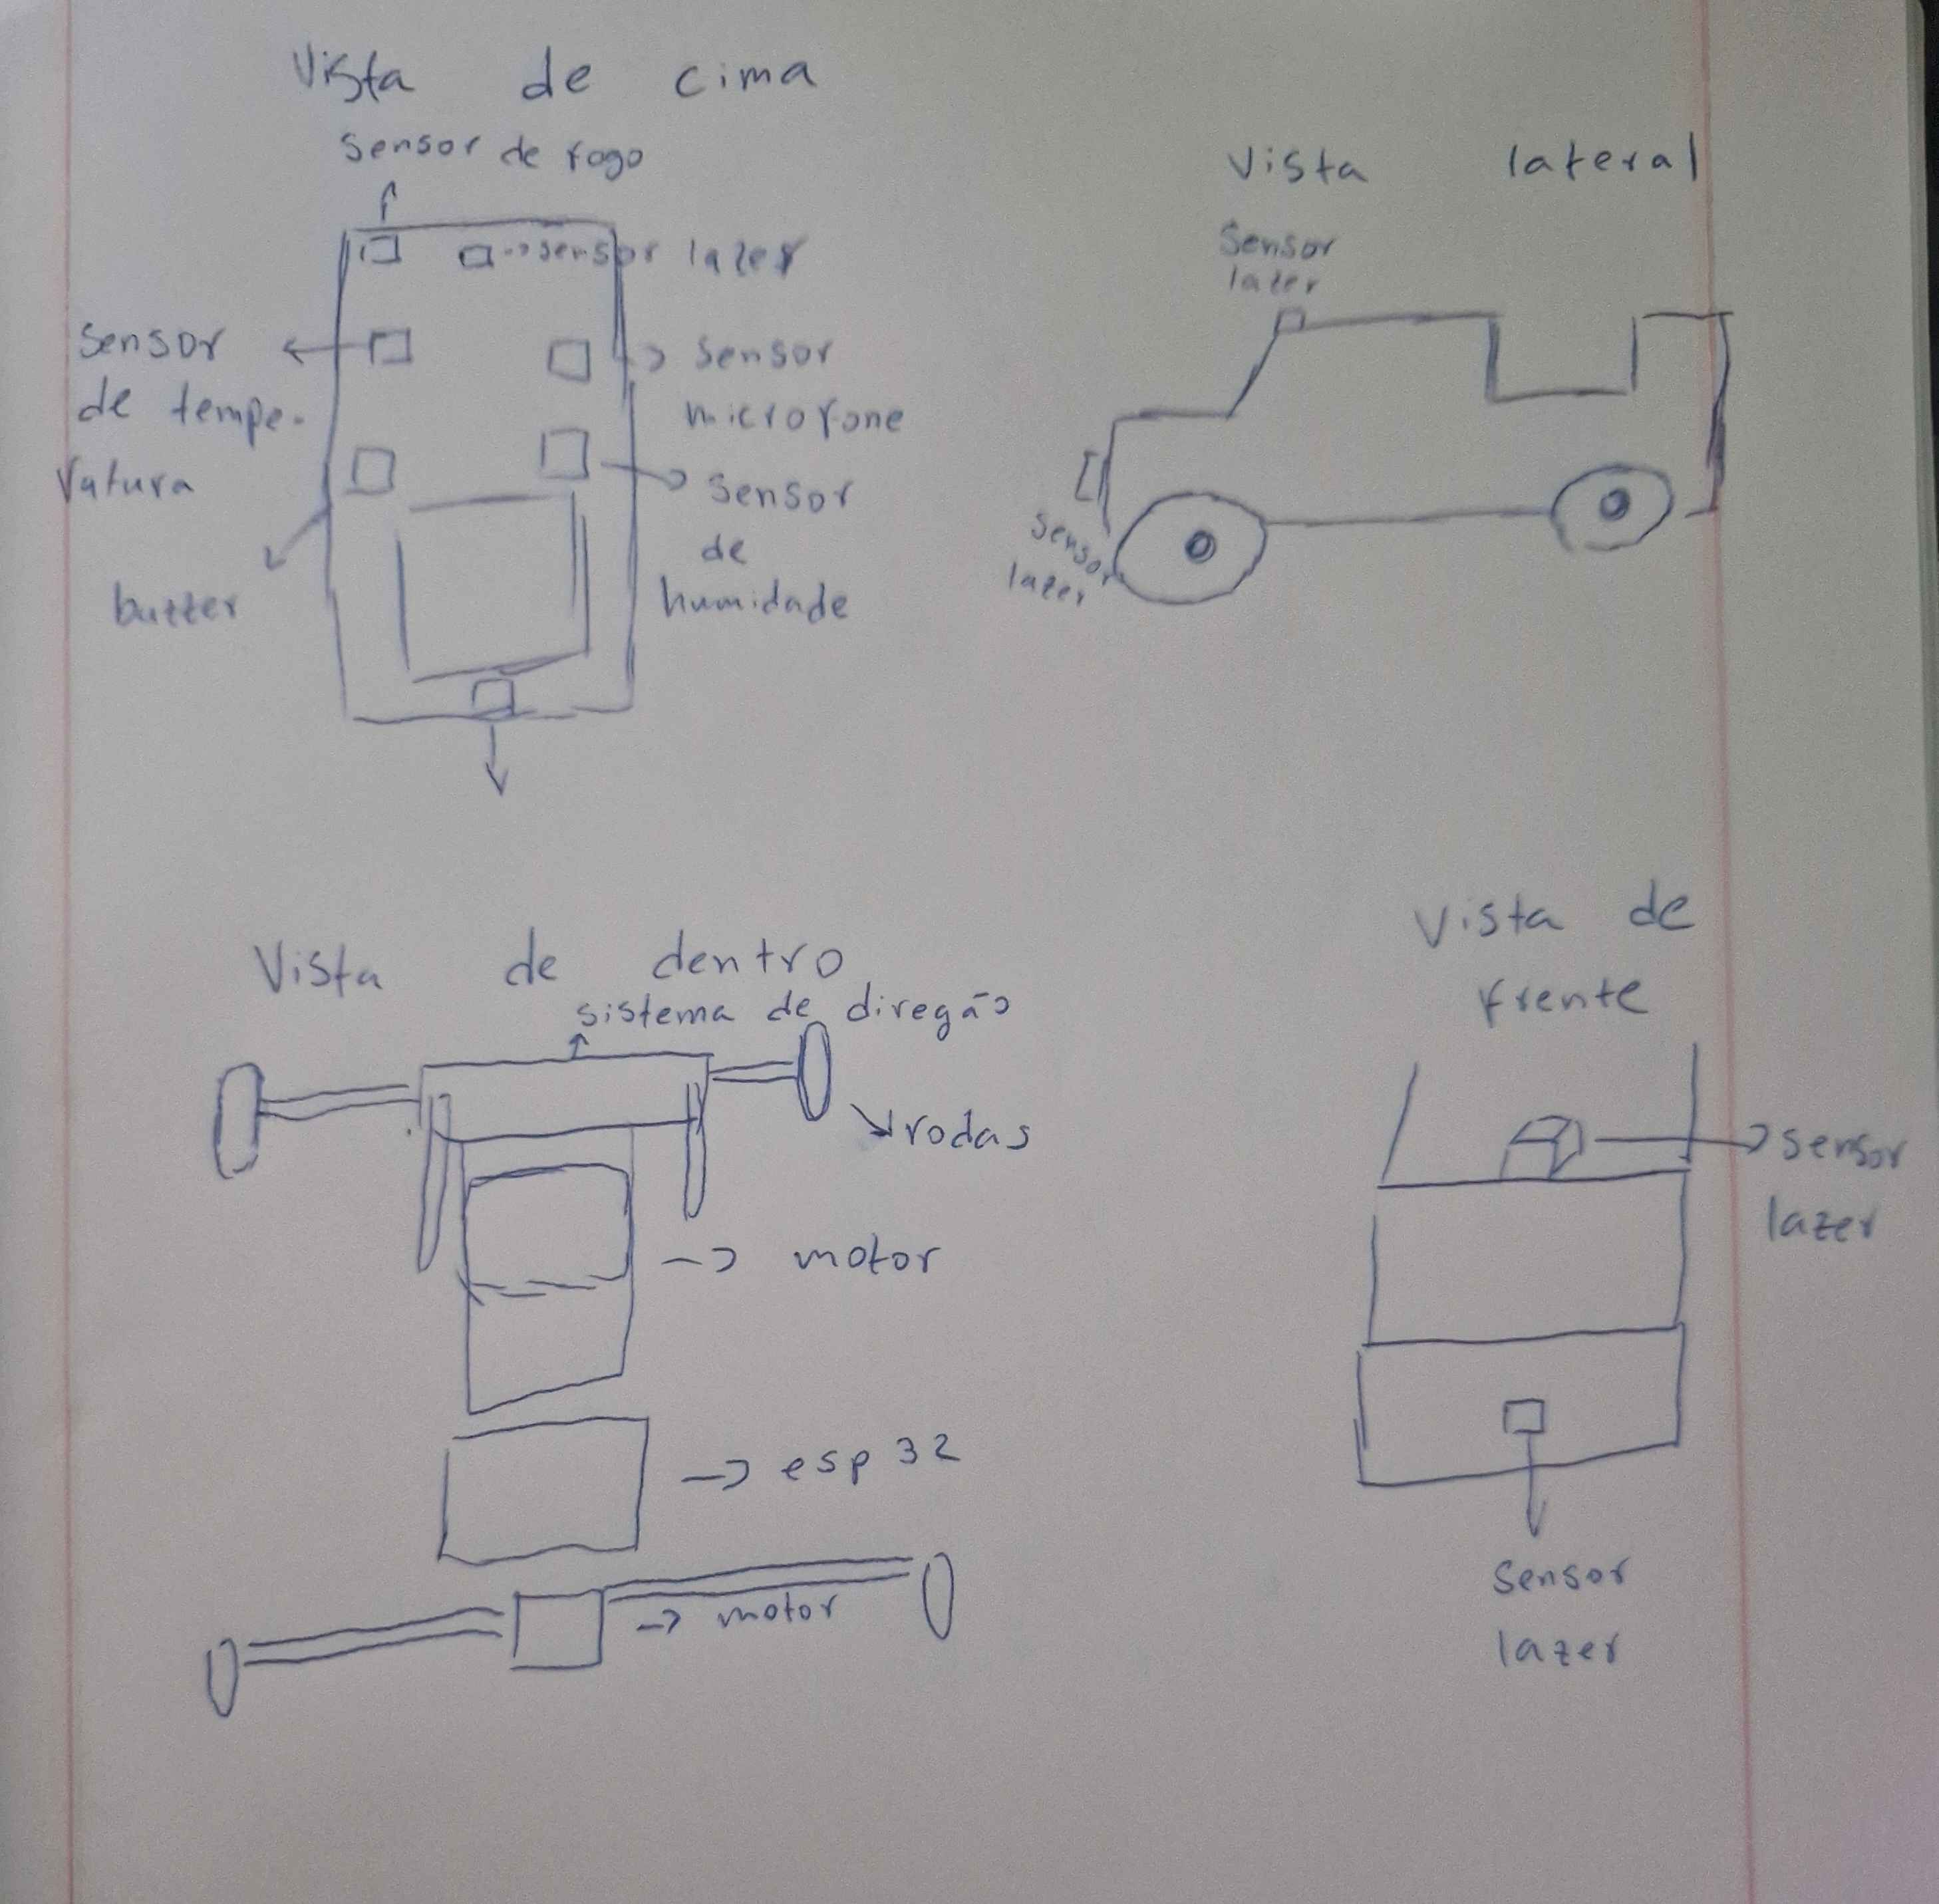 Vista de cima
Sensor de fogo
sensor lazer
sensor
de tempe-
ratura
sensor
microfone
sensor
de
humidade
buzzer
Vista lateral
Sensor
lazer
Sensor
lazer
Vista de dentro
sistema de diregão
rodas
motor
esp 32
motor
Vista de
frente
sensor
lazer
Sensor
lazer